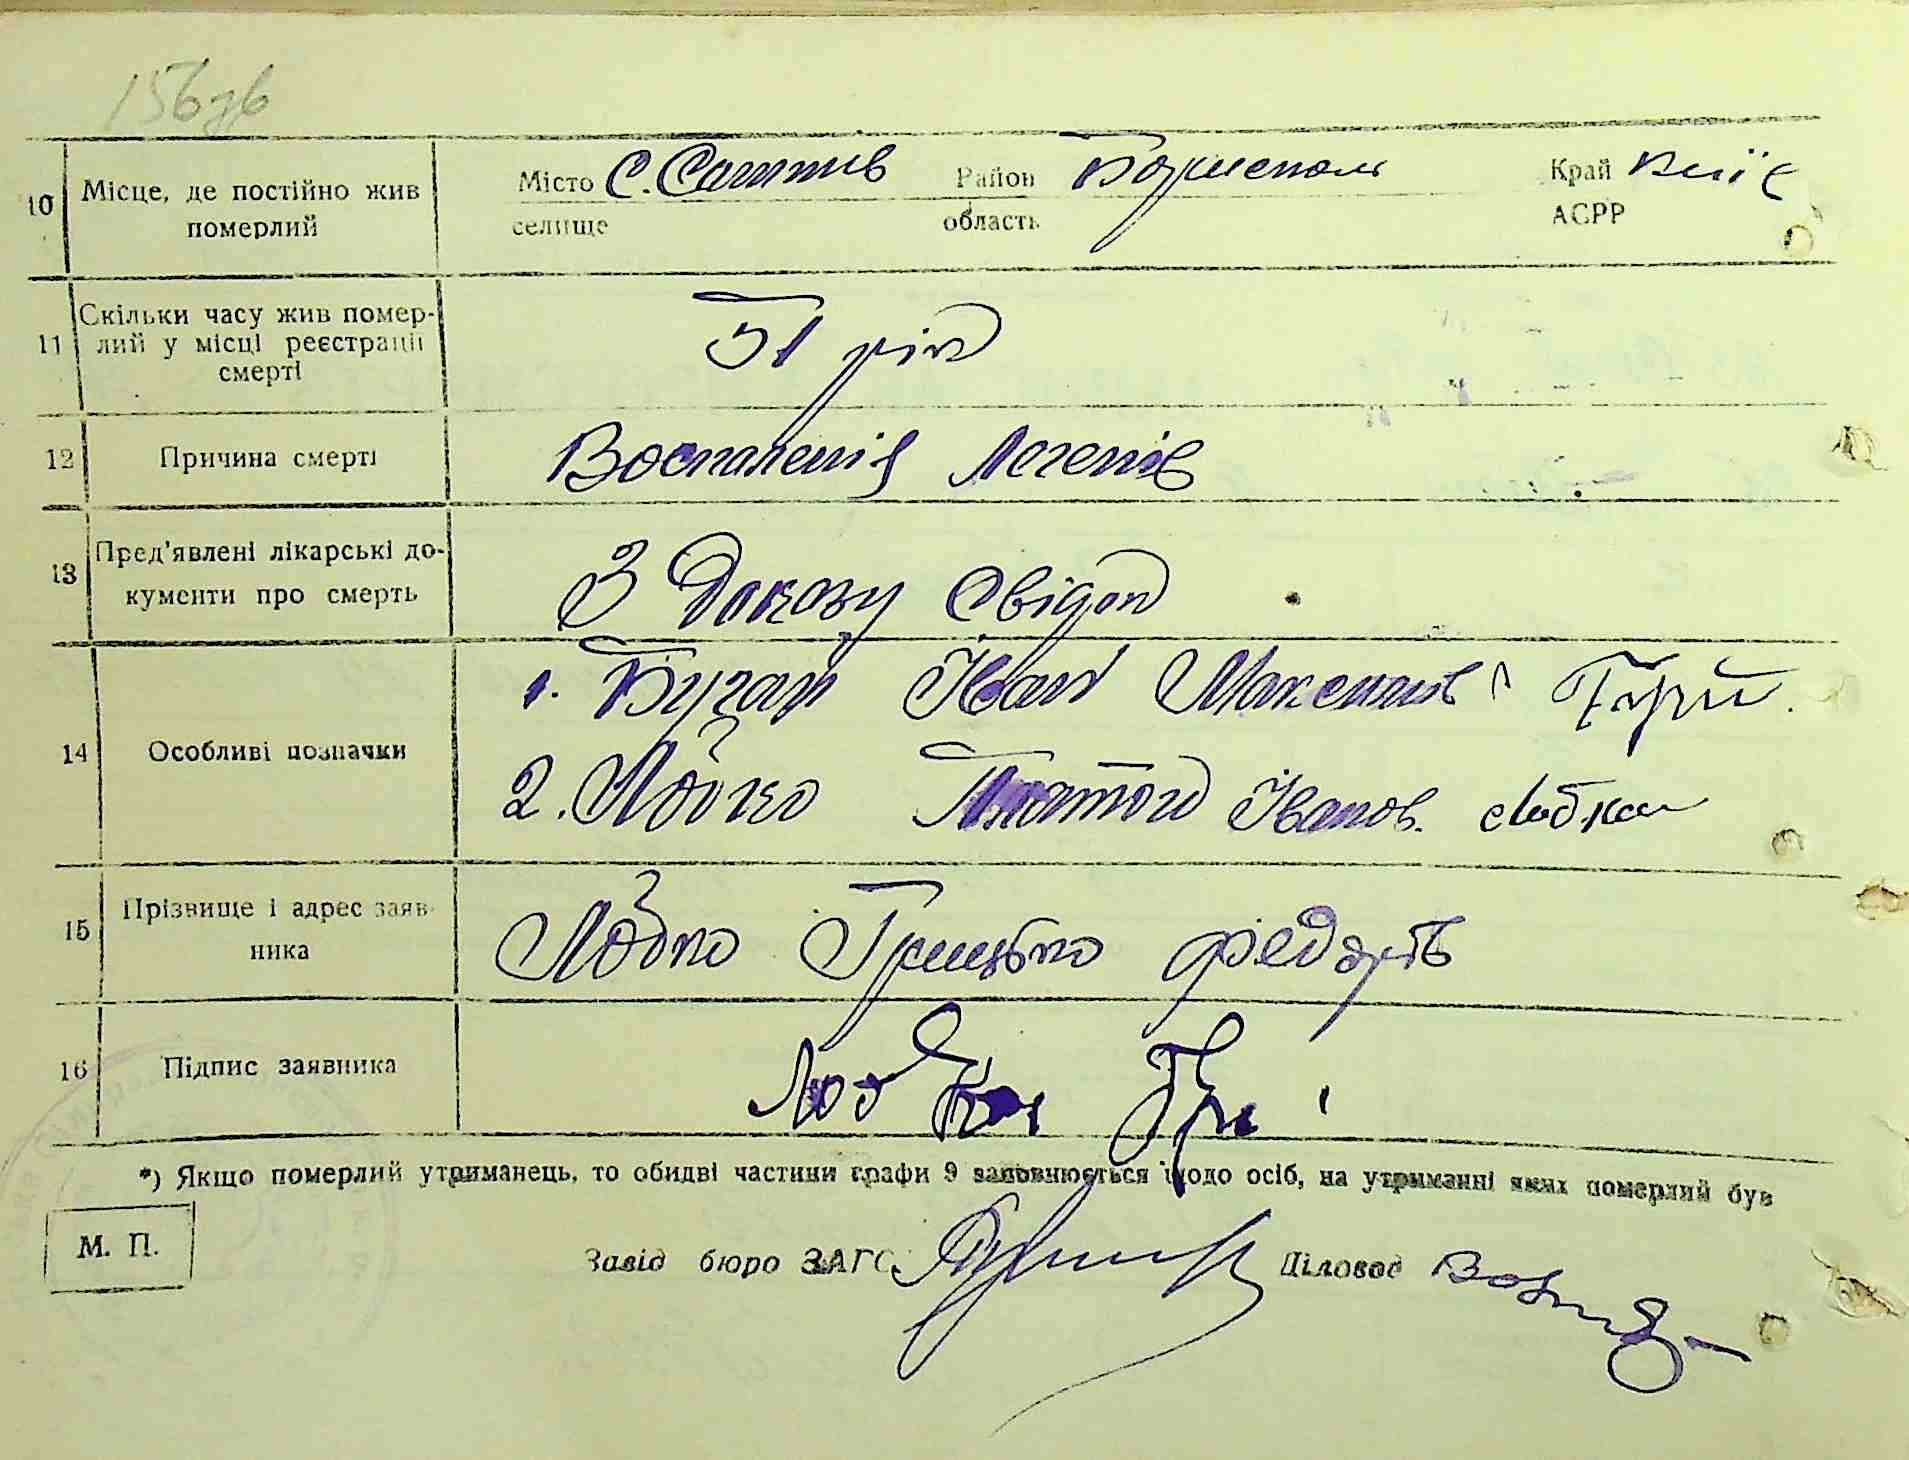 156зв
10 Місце, де постійно жив Місто С. Район Бориспол Край
померлий селище область АСРР
11 Скільки часу жив помер-
лий у місці реєстрації
смерті
51 рік
12 Причина смерті Воспаленія Легенів
13 Пред'явлені лікарські до-
кументи про смерть
З Доказу Свідоп
14 Особливі позначки
1. Бугай Іван Максимов
2. Лобко Платон Іванов. Лобко
15 Прізвище і адрес заяв-
ника
Лобко Грицько Федорів
16 Підпис заявника Лобко Гри
*) Якщо померлий утриманець, то обидві частини графи 9 заповнюється щодо осіб, на утриманні яких померлий був
М. П.
Завід бюро ЗАГС Діловод